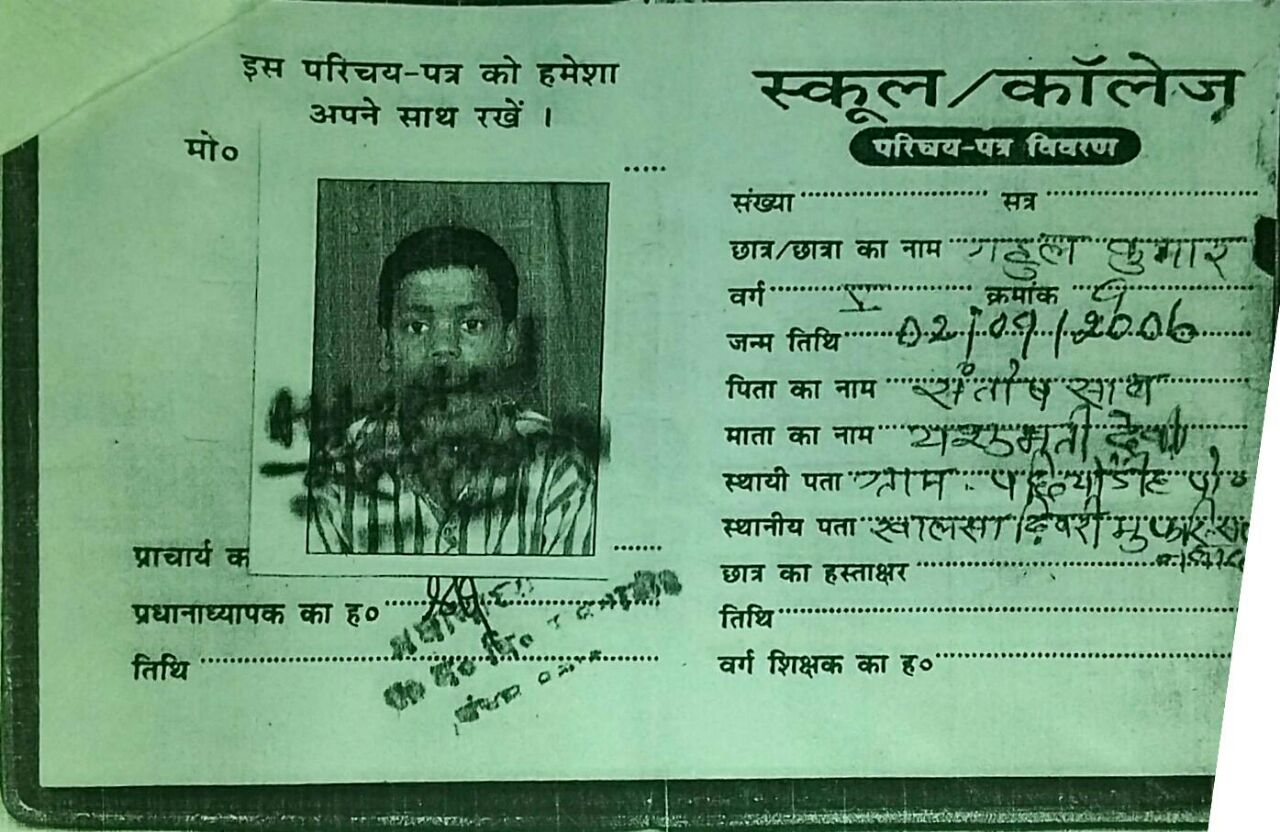 इस परिचय-पत्र को हमेशा
अपने साथ रखें ।
मो०
प्राचार्य क
प्रधानाध्यापक का ह०
तिथि
स्कूल/कॉलेज
परिचय-पत्र विवरण
संख्या सत्र
छात्र/छात्रा का नाम राहुल कुमार
वर्ग V क्रमांक 9
जन्म तिथि 02/09/2006
पिता का नाम संतोष साव
माता का नाम देवी
स्थायी पता ग्राम पो०
स्थानीय पता खालसा
छात्र का हस्ताक्षर
तिथि
वर्ग शिक्षक का ह०